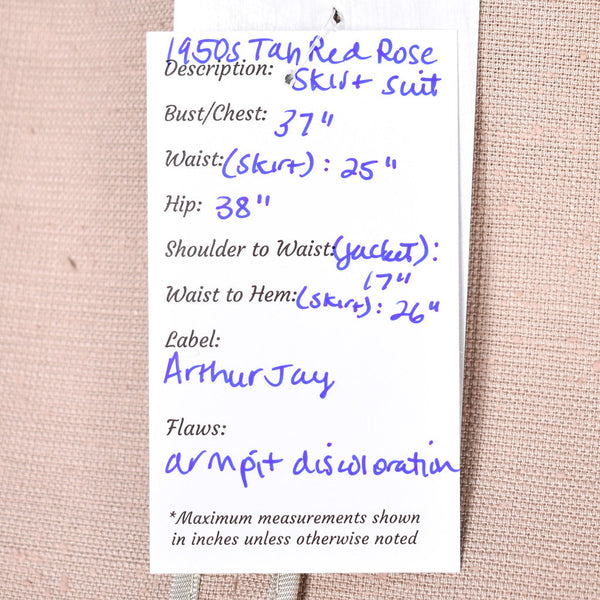 1950s Tan Red Rose
Description: Skirt Suit
Bust/Chest: 37"
Waist: (skirt): 25"
Hip: 38"
Shoulder to Waist: (jacket):
17"
Waist to Hem: (skirt): 26"
Label:
Arthur Jay
Flaws:
armpit discoloration
*Maximum measurements shown
in inches unless otherwise noted